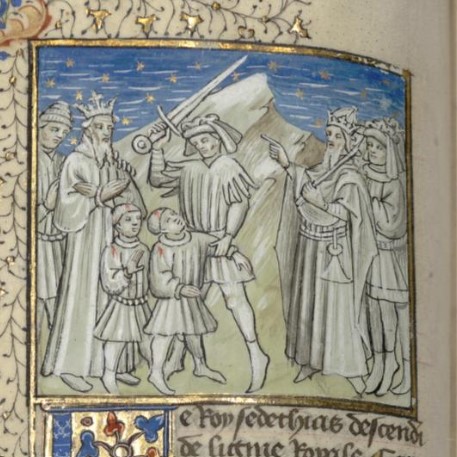 e Roy sedechias descendi
de lignie Royale